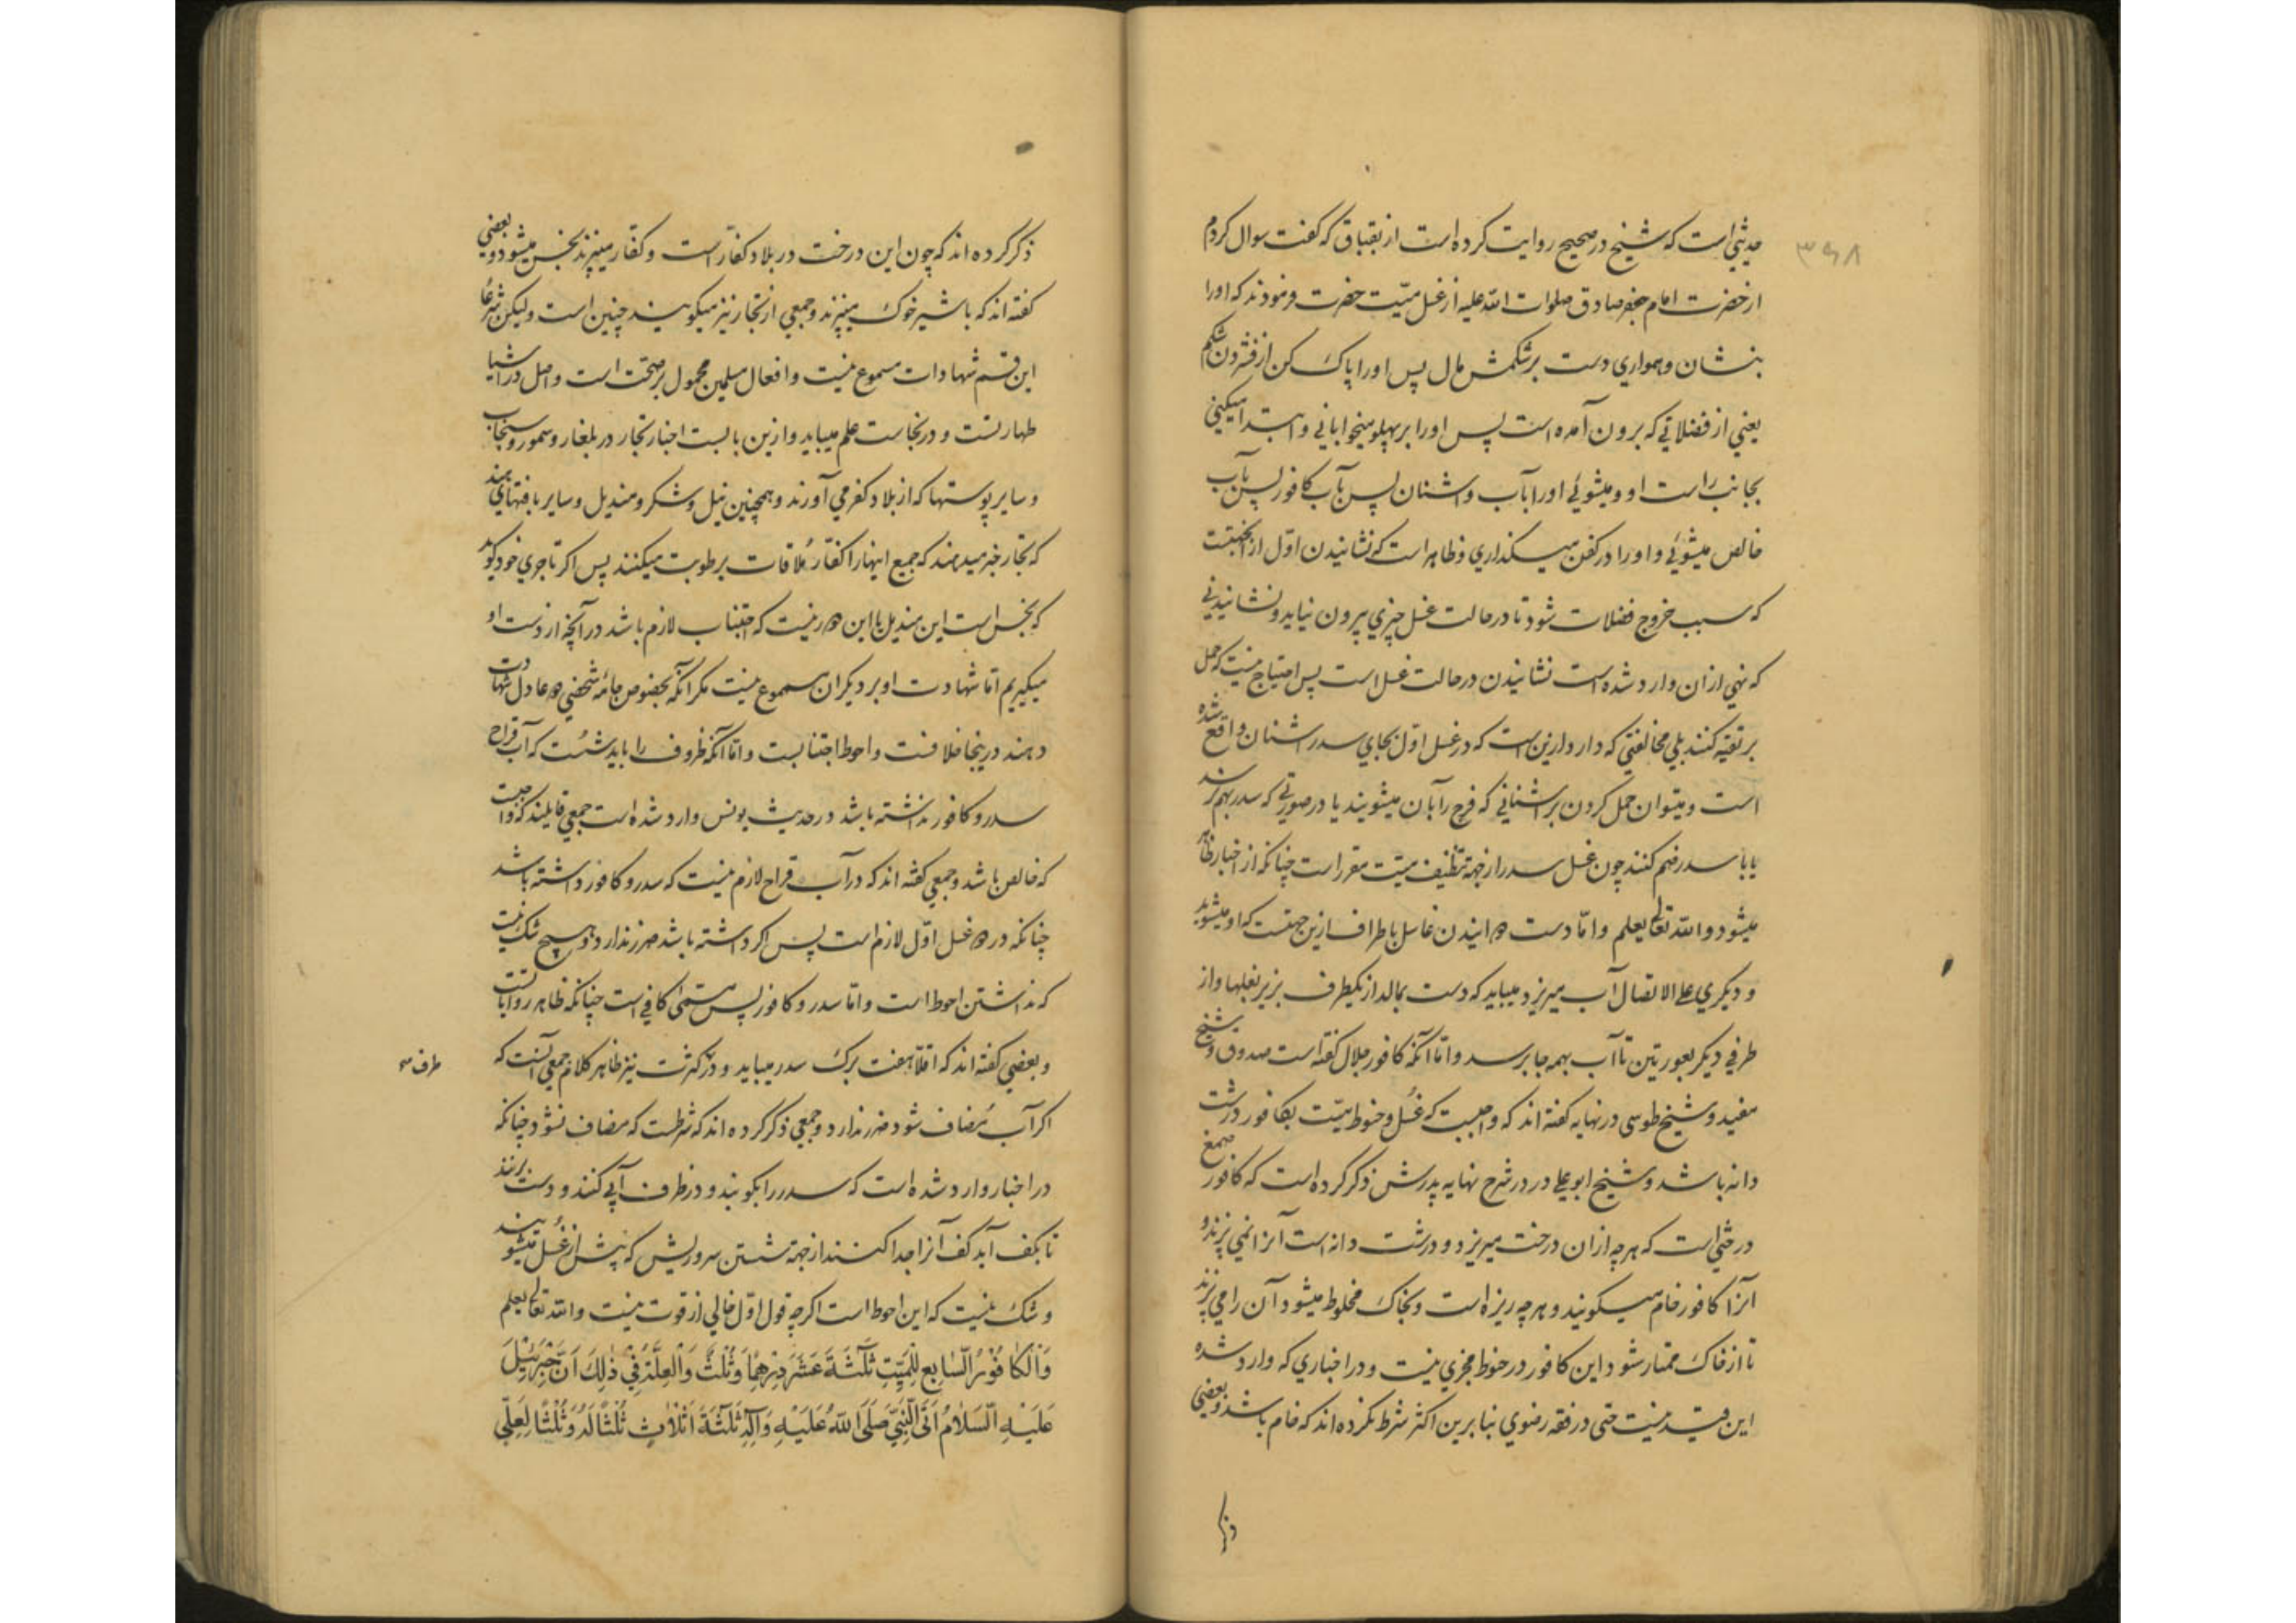 ۳۶۸
حدیثی است که شیخ در صحیح روایت کرده است از بقباق که گفت سوال کردم
از حضرت امام جعفر صادق صلوات الله علیه از غسل میّت حضرت فرمودند که اورا
بنشان و همواری دست بر شکمش مال پس اورا پاک کن از فشردن شکم
یعنی از فضلاتی که برون آمده است پس اورا بر پهلو میخوابانی و ابتدا میکنی
بجانب راست او و میشوئی اورا بآب و اشنان پس بآب کافور پس بآب
خالص میشوئی و اورا در کفن میکذاری و ظاهر است که نشانیدن اوّل از جهتست
که سبب خروج فضلات شود تا در حالت غسل چیزی بیرون نیاید و نشانیدنی
که نهی ازان وارد شده است نشانیدن در حالت غسل است پس احتیاج نیست که حمل
بر تقیّه کنند بلی مخالفتی که دارد ازین است که در غسل اوّل بجای سدر اشنان واقع شده
است و میتوان حمل کردن بر اشنانی که فرج را بآن میشویند یا در صورتی که سدر بهم نرسد
یا با سدر ضم کنند چون غسل سدر از جهة تنظیف میّت مقرر است چنانکه از اخبار ظاهر
میشود و الله تعالی یعلم و امّا دست رسانیدن غاسل باطراف ازین جهتست که او میشوید
و دیکری علی الاتصال آب میریزد میباید که دست بمالد از یکطرف بزیر بغلها و از
طرفی دیکر بعورتین تا آب بهمه جا برسد و امّا آنکه کافور جلال کفته است صدوق و شیخ
مفید و شیخ طوسی در نهایه کفته اند که واجبست که غسل و حنوط میّت بکافور درشت
دانه باشد و شیخ ابو علی در شرح نهایه پدرش ذکر کرده است که کافور صمغ
درختی است که هرچه ازان درخت میریزد و درشت دانه است آنرا نمی پزند و
آنرا کافور خام میکویند و هرچه ریزه است و بخاک مخلوط میشود آن را می پزند
تا از خاک ممتاز شود و این کافور در حنوط مجزی نیست و در اخباری که وارد شده
این قید نیست حتی در فقه رضوی بنابرین اکثر شرط نکرده اند که خام باشد و بعضی
ذکر کرده اند که چون این درخت در بلاد کفّار است و کفّار میپزند نجس میشود و بعضی
کفته اند که با شیر خوک میپزند و جمعی از تجار نیز میکویند چنین است و لیکن شرعاً
این قسم شهادات مسموع نیست و افعال مسلمین محمول بر صحّت است و اصل در اشیا
طهارتست و در نجاست علم میباید و ازین بابست اخبار تجار در بلغار و سمور و سنجاب
و سایر پوستها که از بلاد کفر می آورند و همچنین نیل و شکر و مندیل و سایر بافتهای هند
که تجار خبر میدهند که جمیع اینها را کفّار ملاقات برطوبت میکنند پس اکر تاجری خود کوید
که نجس است این مندیل با این
میکیریم امّا شهادت او بر دیکران مسموع نیست مکر آنکه بخصوص جامه شخصی دو عادل شهادت
دهند درینجا خلافست و احوط اجتنابست و امّا آنکه ظروف را باید شست که آب قراح
سدر و کافور نداشته باشد در حدیث یونس وارد شده است جمعی قایلند که واجبست
که خالص باشد و جمعی کفته اند که در آب قراح لازم نیست که سدر و کافور داشته باشد
چنانکه در دو غسل اوّل لازم است پس اکر داشته باشد ضرر ندارد و هیچ شک نیست
که نداشتن احوط است و امّا سدر و کافور پس مسمّی کافی است چنانکه ظاهر روایاتست
و بعضی کفته اند که اقلّا هفت برک سدر میباید و در کثرت نیز ظاهر کلام جمعی آنست که
اکر آب مُضاف شود ضرر ندارد و جمعی ذکر کرده اند که شرطست که مضاف نشود چنانکه
در اخبار وارد شده است که سدر را بکویند و در ظرف آبی کنند و دست برنند
تا بکف آید کف آنرا جدا کنند از جهة شستن سر و ریش که پیش از غسل میشویند
و شک نیست که این احوط است اکرچه قول اوّل خالی از قوت نیست و الله تعالی یعلم
وَالْكَافُورُ السَّابِعُ لِلْمَيِّتِ ثَلٰثَةَ عَشَرَ دِرْهَمًا وَ ثُلُثٌ وَالْعِلَّةُ فِي ذٰلِكَ اَنَّ جَبْرَئِيلَ
عَلَيْهِ السَّلَامُ اَتَى النَّبِيَّ صَلَّى اللهُ عَلَيْهِ وَآلِهِ ثَلٰثَةَ اَثْلَاثٍ ثُلُثًا لَهُ وَ ثُلُثًا لِعَلِيٍّ
طرف
ذکر